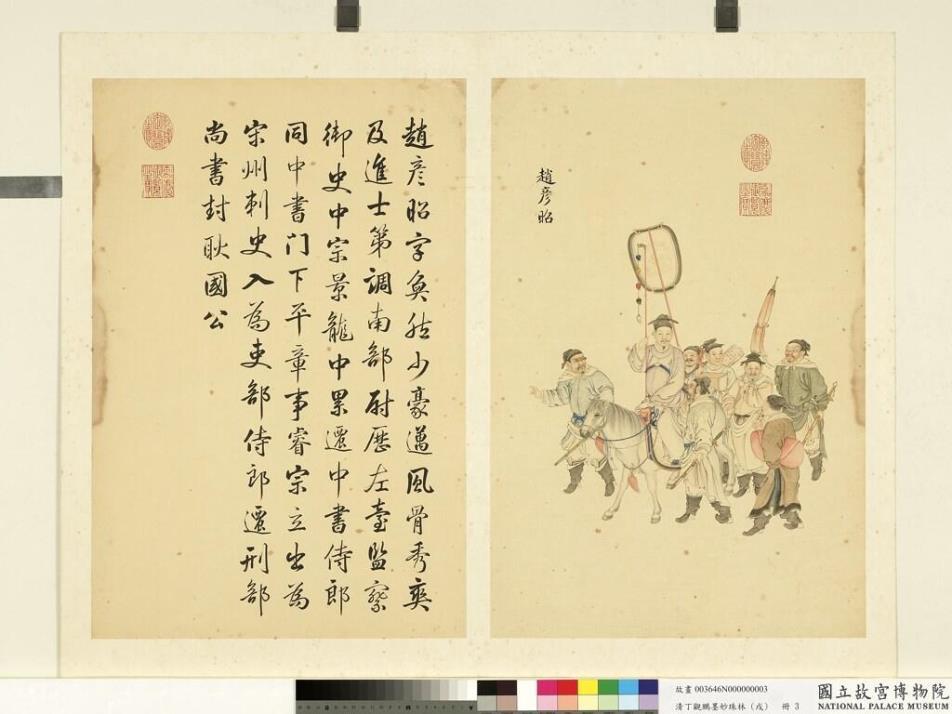 趙彥昭
趙彥昭字奐然少豪邁風骨秀爽
及進士第調南部尉歷左臺監察
御史中宗景龍中累遷中書侍郎
同中書門下平章事睿宗立出為
宋州刺史入為吏部侍郎遷刑部
尚書封耿國公
故畫 003646N000000003
清丁觀鵬墨妙珠林(戌) 冊 3
國立故宮博物院
NATIONAL PALACE MUSEUM